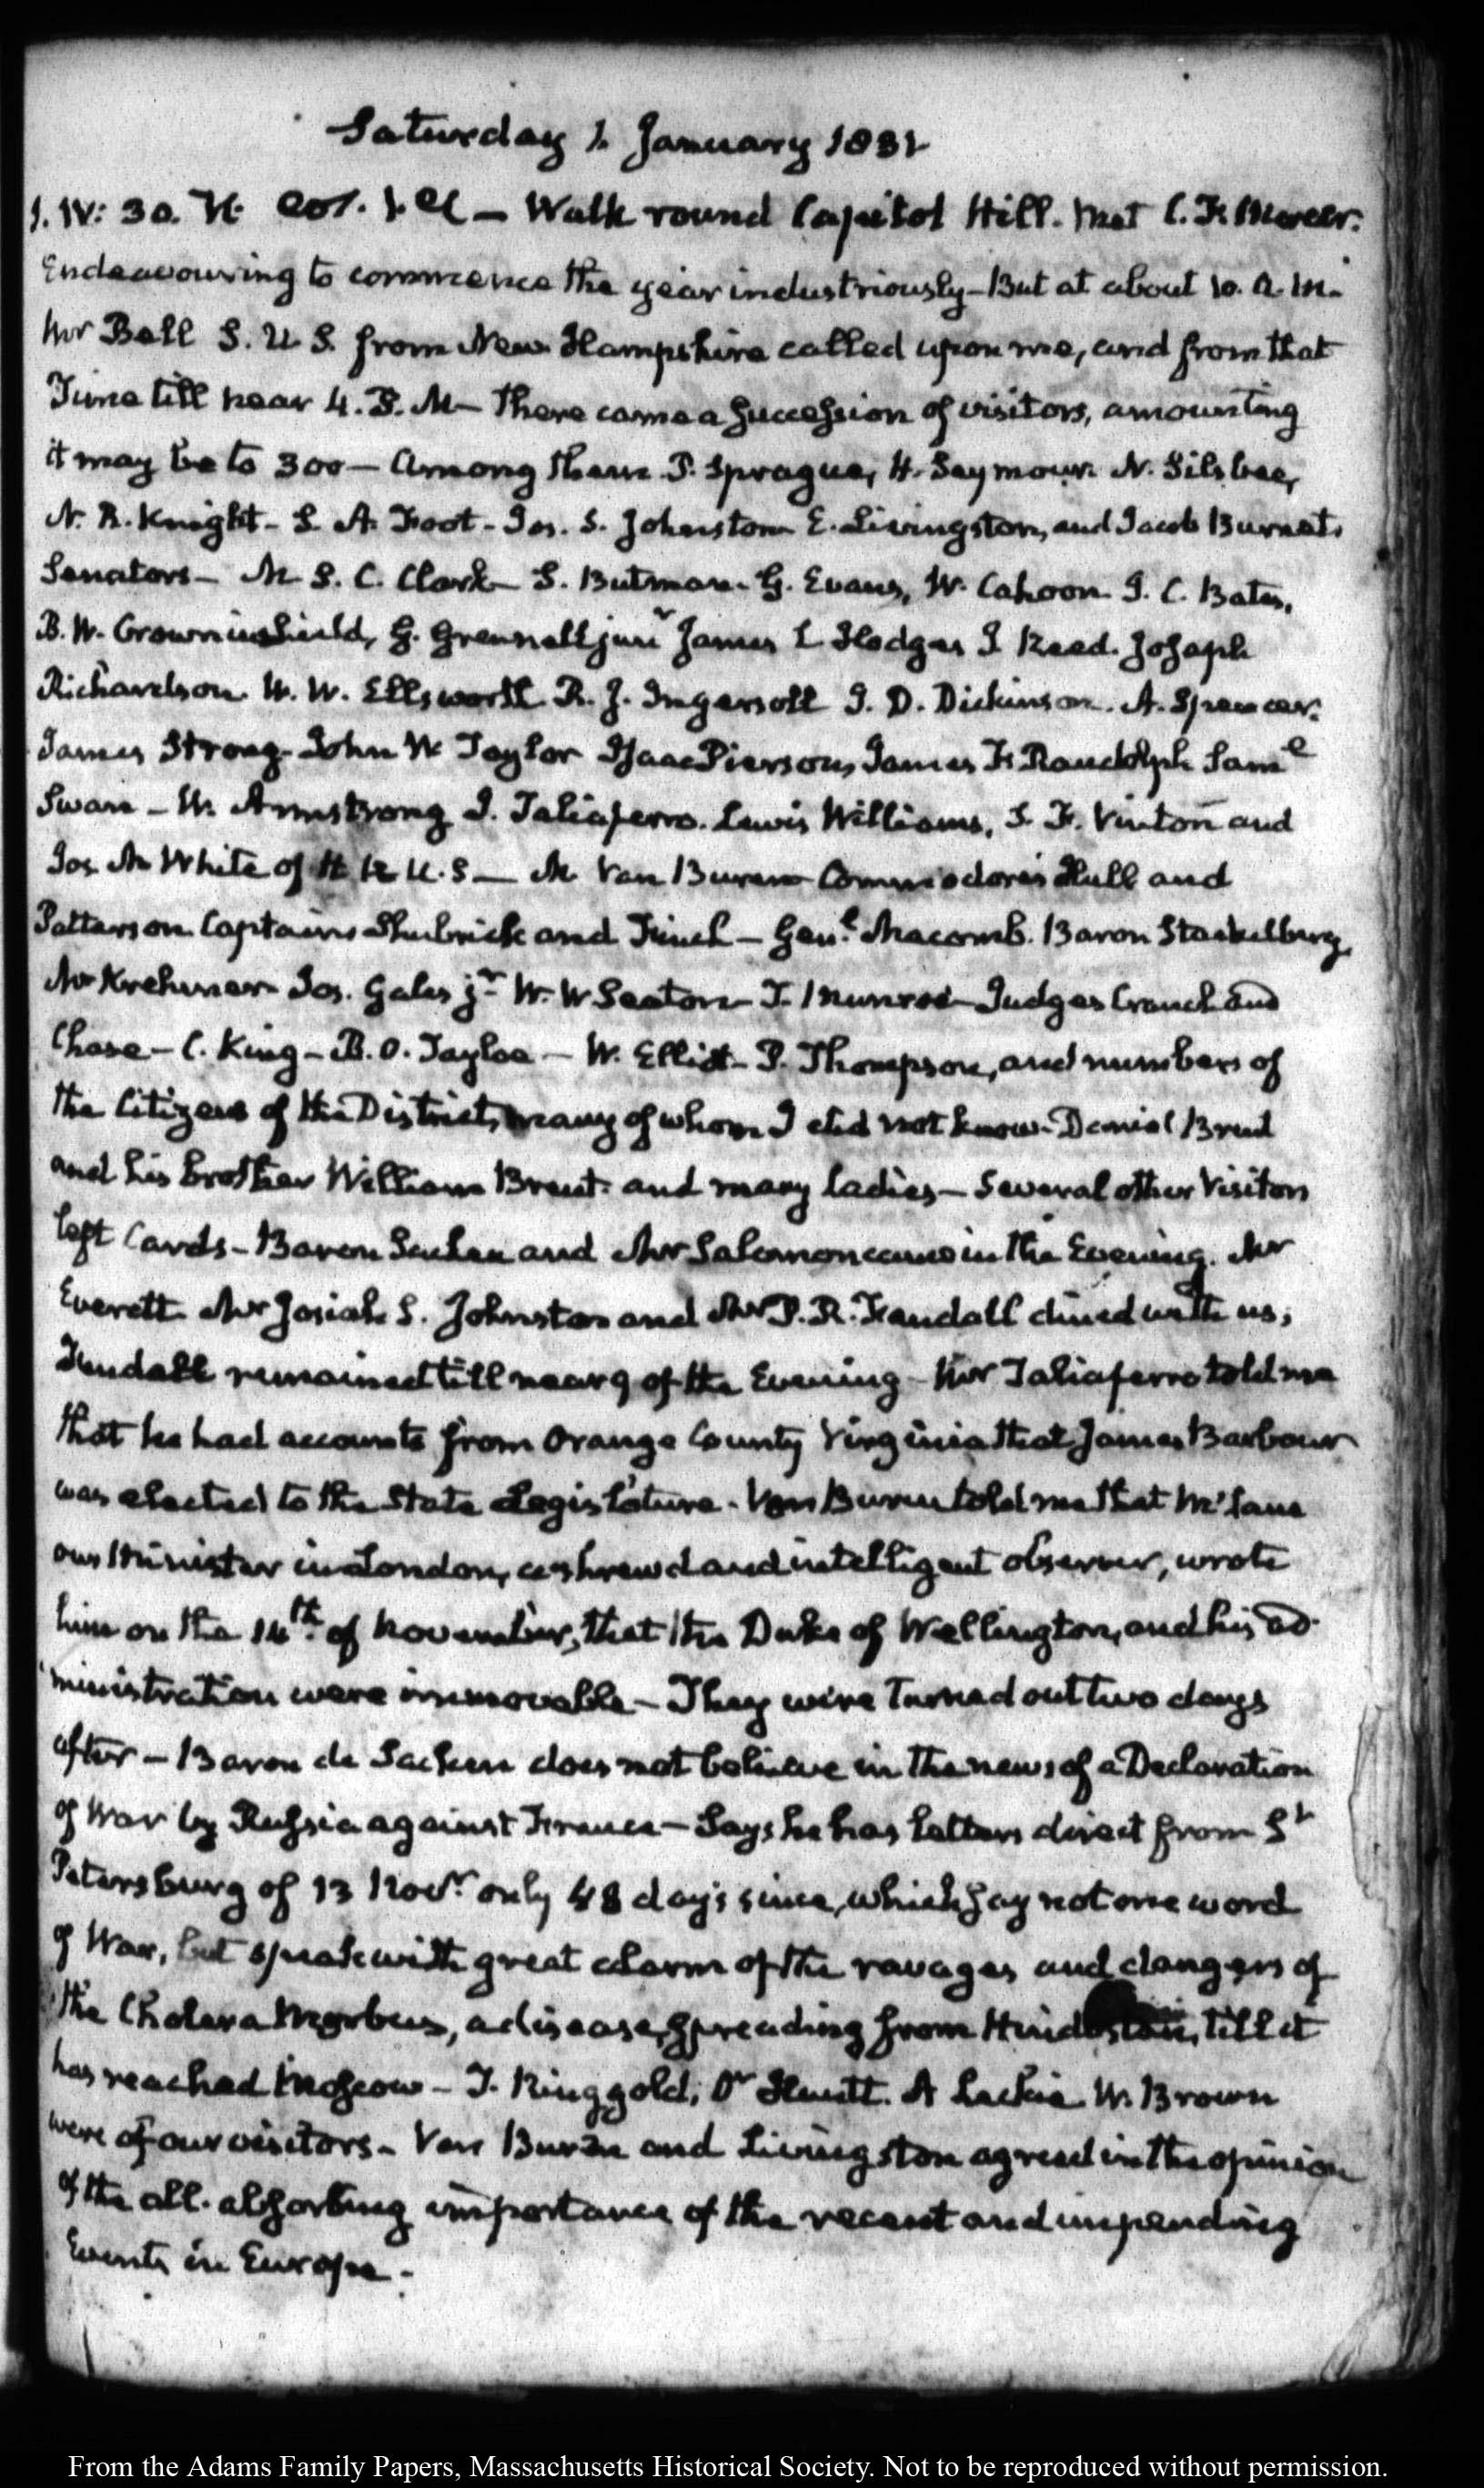 Saturday 1. January 1831
1. IV: 30. Walk round Capitol Hill. Met C. F. Mercer.
Endeavouring to commence the year industriously — But at about 10. A.M.
Mr Bell S. U S. from New Hampshire called upon me, and from that
Time till near 4. P. M — There came a succession of visitors, amounting
it may be to 300 — Among them P. Sprague, H. Seymour N. Silsbee,
N. R. Knight — S. A. Foot — Jos. S. Johnston E. Livingston, and Jacob Burnet.
Senators — S. C. Clark — S. Butman — G. Evans, W. Cahoon I. C. Bates,
B. W. Crowninshield, G. Grennell junr James L Hodges J Reed. Joseph
Richardson. W. W. Ellsworth R. J. Ingersoll J. D. Dickinson. A. Spencer.
James Strong — John W Taylor Isaac Pierson, James F. Randolph Saml
Swan — W. Armstrong J. Taliaferro. Lewis Williams, S. F. Vinton and
Jos. M White of H R U. S — M Van Buren Commodores Hull and
Patterson Captains Shubrick and Finch — Genl Macomb. Baron Stackelberg
Mr Krehmer Jos. Gales jr W. W Seaton — T. Munroe — Judges Cranch and
Chase — C. King — B. O. Tayloe — W. Elliot — P. Thompson, and numbers of
the Citizens of the District, many of whom I did not know — Daniel Brent
and his brother William Brent. and many Ladies — Several other Visitors
left Cards — Baron Sacken and Mr Salomon came in the Evening. Mr
Everett Mr Josiah S. Johnston and Mr P. R. Fendall dined with us,
Fendall remained till near 9 of the Evening — Mr Taliaferro told me
that he had accounts from Orange County Virginia that James Barbour
was elected to the State Legislature. Van Buren told me that McLane
our Minister in London, a shrewd and intelligent observer, wrote
him on the 14th of November, that the Duke of Wellington, and his ad-
ministration were immovable — They were turned out two days
after — Baron de Sacken does not believe in the news of a Declaration
of War by Russia against France — Says he has letters direct from St
Petersburg of 13 Novr only 48 days since, which say not one word
of War, but speak with great alarm of the ravages and dangers of
the Cholera Morbus, a disease, spreading from Hindostan, till it
has reached Moscow — T. Ringgold, Dr Huntt. A Leckie W. Brown
were of our visitors — Van Buren and Livingston agreed in the opinion
of the all-absorbing importance of the recent and impending
Events in Europe.
From the Adams Family Papers, Massachusetts Historical Society. Not to be reproduced without permission.